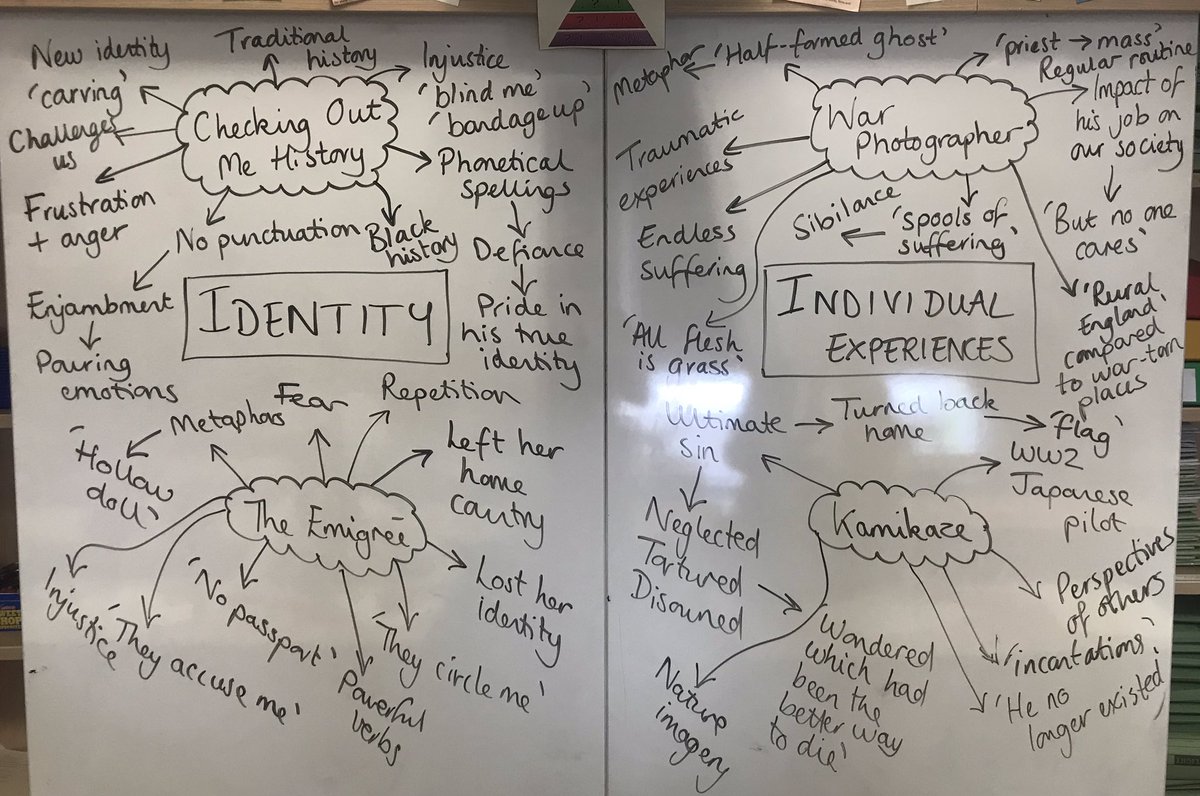 New identity
'carving'
Challenges
us
Traditional
history
Injustice
'blind me'
'bandage up'
Checking Out
Me History
Frustration
+ anger
Phonetical
Spellings
No punctuation
Black
history
Defiance
Enjambment
Pouring
emotions
Pride in
his true
identity
IDENTITY
Metaphors
Fear
Repetition
'Hollow
doll'
Left her
home
country
The Emigreé
Injustice
'They accuse me'
'No passport'
Powerful
verbs
'They circle me'
Lost her
identity
Metaphor
'Half-formed ghost'
'priest → mass'
Regular routine
Impact of
his job on
our society
War
Photographer
Traumatic
experiences
Endless
suffering
Sibilance
'spools of
suffering'
'But no one
cares'
'All flesh
is grass'
'Rural
England'
compared
to war-torn
places
INDIVIDUAL
EXPERIENCES
Ultimate
sin
Turned back
home
'flag'
WW2
Japanese
pilot
Kamikaze
Neglected
Tortured
Disowned
Wondered
which had
been the
better way
to die'
Nature
imagery
Perspectives
of others
'incantations'
'He no
longer existed